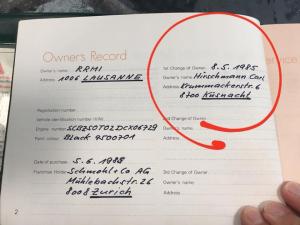 Owner's Record
Owner's name KRMI
Address 1006 LAUSANNE
Registration number
Vehicle identification number (VIN)
Engine number SCBZSOT02DCX06729
Paint colour Black 9500701
Date of purchase 5.6.1988
Franchise Holder Schmohl & Co AG
Mühlebachstr. 26
8008 Zurich
2
1st Change of Owner 8.5.1985
Owner's name Hirschmann Carl
Address Krummackerstr. 6
8700 Küsnacht
2nd Change of Owner
Owner's name
Address
3rd Change of Owner
Owner's name
Address